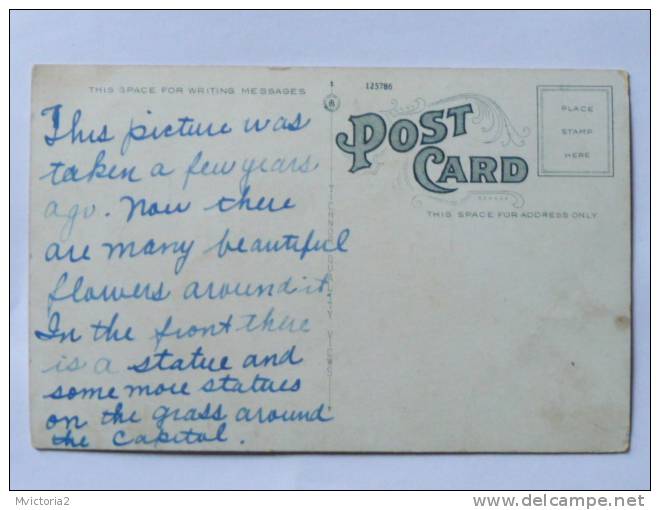 THIS SPACE FOR WRITING MESSAGES
This picture was
taken a few years
ago. Now there
are many beautiful
flowers around it.
In the front there
is a statue and
some more statues
on the grass around
the Capitol.
123786
POST
CARD
THIS SPACE FOR ADDRESS ONLY
PLACE
STAMP
HERE
VIEWS
Mvictoria2
www.delcampe.net